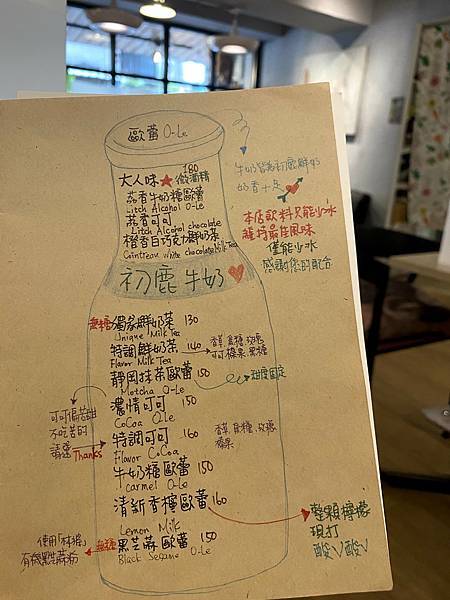 歐蕾 O-Le
大人味★微酒精 180
荔香牛奶糖歐蕾
Litch Alcohol O-Le
荔香可可
Litch Alcohol chocolate
橙香白巧克力鮮奶茶
Cointreau white chocolate Milk Tea
初鹿牛奶
無糖 獨家鮮奶茶 130
Unique Milk Tea
特調鮮奶茶 140
Flavor Milk Tea
靜岡抹茶歐蕾 150
Motcha O-Le
濃情可可 150
CoCoa O.Le
特調可可 160
Flavor CoCoa
牛奶糖歐蕾 150
carmel O-Le
清新香檸歐蕾 160
Lemon Milk
無糖 黑芝麻歐蕾 150
Black Sesame O-Le
牛奶皆為初鹿鮮奶
奶香十足
本店飲料只能少冰
維持最佳風味
僅能少冰
感謝您的配合
榛果、黑糖
甜度固定
可可偏苦甜
不吃苦的
請避 Thanks
玫瑰
榛果
整顆檸檬
現打
酸√酸√
使用「林銀」
有機黑芝麻粉